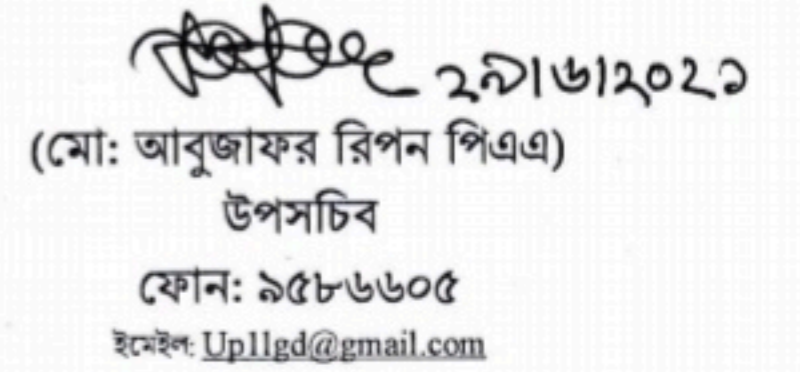 ২৯।৬।২০২১
(মো: আবুজাফর রিপন পিএএ)
উপসচিব
ফোন: ৯৫৮৬৬০৫
ইমেইল: Up1lgd@gmail.com